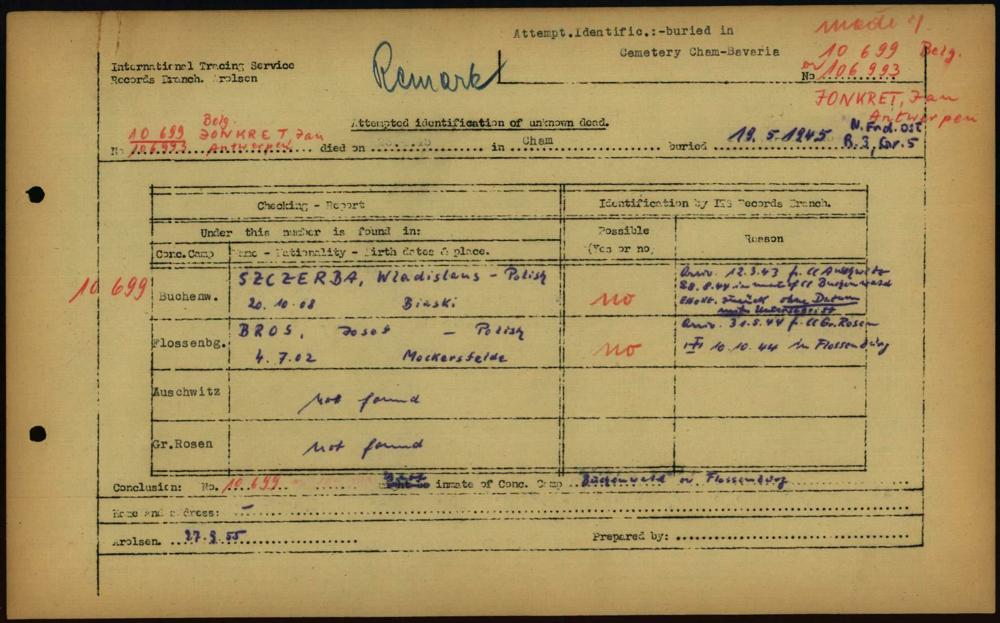 Attempt.Identific.:-buried in
Cemetery Cham-Bavaria
made of
10 699 Belg.
or
No 106993
JONKRET, Jan
Antwerpen
International Tracing Service
Records Branch. Arolsen
Remark
Attempted identification of unknown dead.
Belg.
10 699 JONKRET, Jan
No 106993 Antwerpen died on in Cham buried 19.5.1945 N. Frd. Ost
Checking - Report
Identification by ITS Records Branch.
Under this number is found in:
Possible
(Yes or no)
Reason
Conc.Camp
Name - Nationality - Birth dates & place.
10 699
Buchenw.
SZCZERBA, Wladislaus - Polish
20.10.08 Binski
no
Arriv. 12.3.43 fr. CC Auschwitz
28.8.44 inmate of CC Buchenwald
Effekt. zurück ohne Datum
mit Unterschrift
Flossenbg.
BROS, Josef - Polish
4.7.02 Mockersfelde
no
Arriv. 31.5.44 f. CC Gr. Rosen
10.10.44 in Flossenbürg
Auschwitz
not found
Gr.Rosen
not found
Conclusion: No. 10 699 might be inmate of Conc. Camp Buchenwald or Flossenbürg
Name and address: -
Arolsen. 27.9.55
Prepared by: